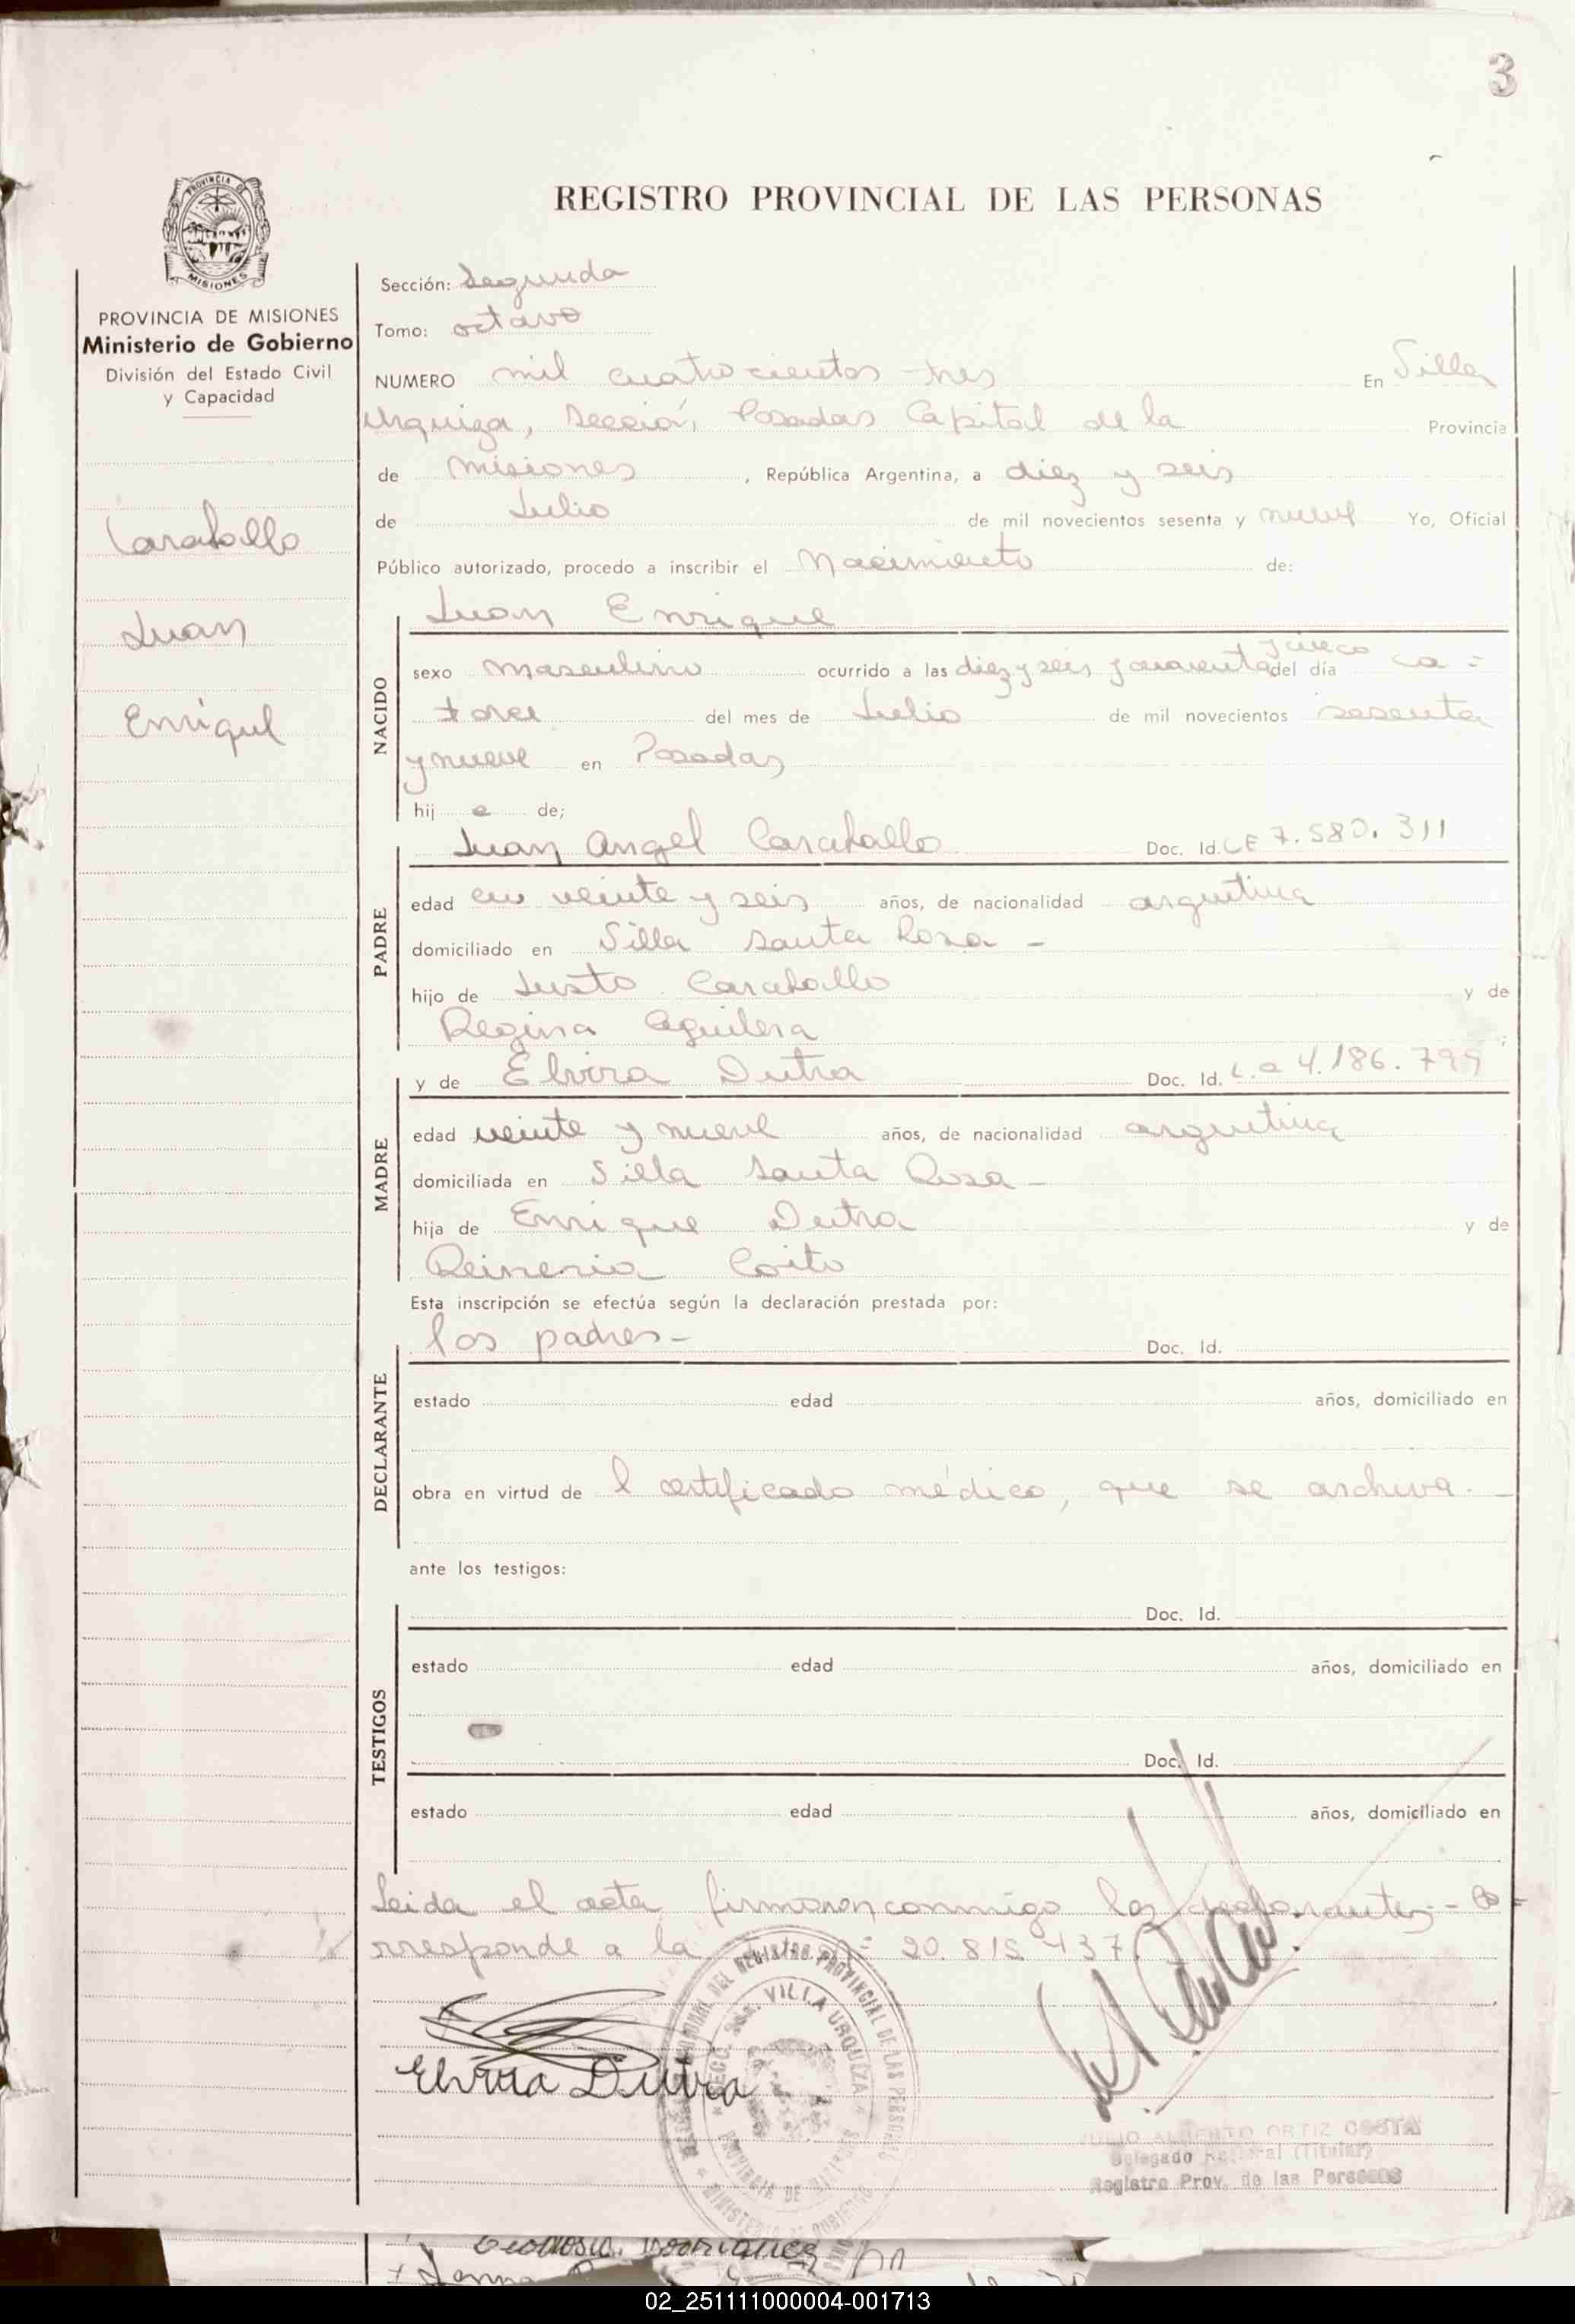 3
PROVINCIA DE
MISIONES
REGISTRO PROVINCIAL DE LAS PERSONAS
PROVINCIA DE MISIONES
Ministerio de Gobierno
División del Estado Civil
y Capacidad
Caraballo
Juan
Enrique
Sección: Segunda
Tomo: octavo
NUMERO mil cuatrocientos tres En Villa
Urquiza, Sección, Posadas Capital de la Provincia
de Misiones, República Argentina, a diez y seis
de Julio de mil novecientos sesenta y nueve Yo, Oficial
Público autorizado, procedo a inscribir el Nacimiento de:
NACIDO
Juan Enrique
sexo masculino ocurrido a las diez y seis y cuarenta y cinco del día ca=
torce del mes de Julio de mil novecientos sesenta
y nueve en Posadas
hij o de;
PADRE
Juan Angel Caraballo Doc. Id. LE 7.580.311
edad veinte y seis años, de nacionalidad argentina
domiciliado en Villa Santa Rosa -
hijo de Justo Caraballo y de
Regina Aguilera
MADRE
y de Elvira Dutra Doc. Id. L.C 4.186.799
edad veinte y nueve años, de nacionalidad argentina
domiciliada en Villa Santa Rosa -
hija de Enrique Dutra y de
Coito
Esta inscripción se efectúa según la declaración prestada por:
DECLARANTE
los padres - Doc. Id.
estado edad años, domiciliado en
obra en virtud de l certificado médico, que se archiva. -
ante los testigos:
TESTIGOS
Doc. Id.
estado edad años, domiciliado en
Doc. Id.
estado edad años, domiciliado en
Leida el acta firmaron conmigo los declarantes - Co=
rresponde a la Nº 20.815.437
Elvira Dutra
DEL REGISTRO PROVINCIAL DE LAS PERSONAS
SECC. 2da. VILLA URQUIZA
PROVINCIA DE MISIONES
MINISTERIO DE GOBIERNO
JULIO ALBERTO ORTIZ COSTA
Delegado (Titular)
Registro Prov. de las Personas
02_251111000004-001713